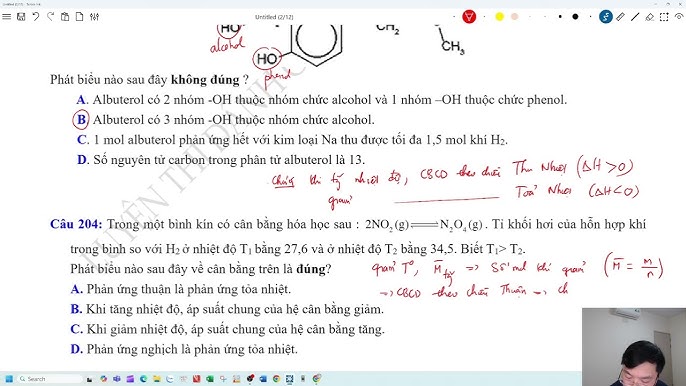 Untitled (2/12)
HO
alcohol
HO
phenol
CH₂
CH₃
Phát biểu nào sau đây không đúng ?
A. Albuterol có 2 nhóm -OH thuộc nhóm chức alcohol và 1 nhóm –OH thuộc chức phenol.
B. Albuterol có 3 nhóm -OH thuộc nhóm chức alcohol.
C. 1 mol albuterol phản ứng hết với kim loại Na thu được tối đa 1,5 mol khí H₂.
D. Số nguyên tử carbon trong phân tử albuterol là 13.
khi tg nhiệt độ, CBCD theo chiều Thu Nhiệt (ΔH>0)
giảm Toả Nhiệt (ΔH<0)
Câu 204: Trong một bình kín có cân bằng hóa học sau : 2NO₂(g) ⇌ N₂O₄(g). Tỉ khối hơi của hỗn hợp khí
trong bình so với H₂ ở nhiệt độ T₁ bằng 27,6 và ở nhiệt độ T₂ bằng 34,5. Biết T₁> T₂.
Phát biểu nào sau đây về cân bằng trên là đúng?
giảm T°, M̄ tg => Số mol khí giảm (M̄ = m/n)
A. Phản ứng thuận là phản ứng tỏa nhiệt.
=> CBCD theo chiều Thuận -> ch
B. Khi tăng nhiệt độ, áp suất chung của hệ cân bằng giảm.
C. Khi giảm nhiệt độ, áp suất chung của hệ cân bằng tăng.
D. Phản ứng nghịch là phản ứng tỏa nhiệt.
Search